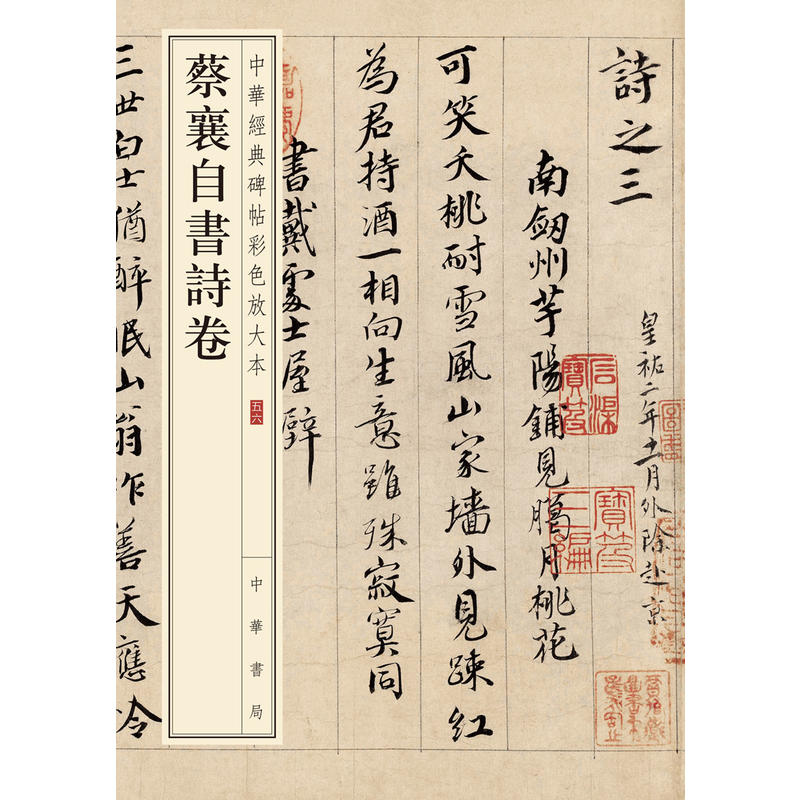 詩之三
皇祐二年十一月外除赴京
南劔州芋陽鋪見臈月桃花
可笑夭桃耐雪風山家墻外見踈紅
為君持酒一相向生意雖殊寂寞同
書戴處士屋壁
中華經典碑帖彩色放大本
五六
中華書局
蔡襄自書詩卷
三世白士猶醉眠山翁作善天應冷
寶笈三編